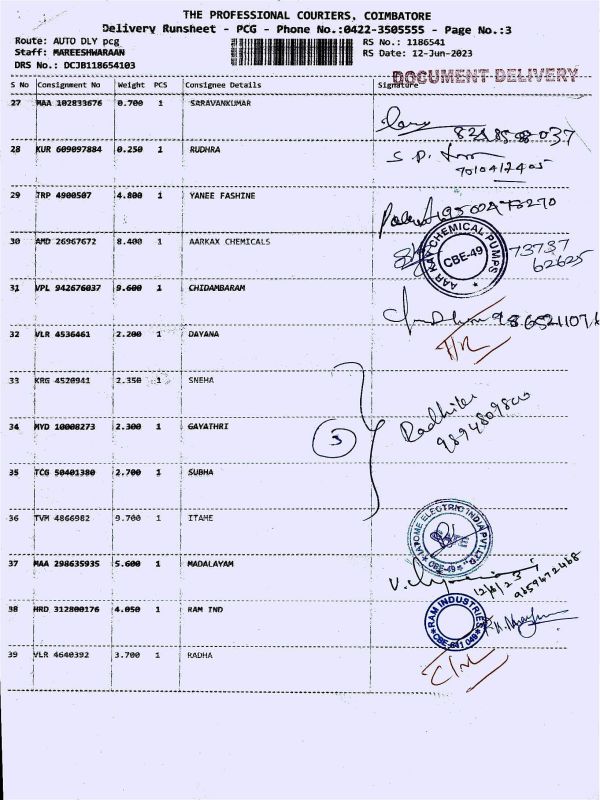 THE PROFESSIONAL COURIERS, COIMBATORE
Delivery Runsheet - PCG - Phone No.:0422-3505555 - Page No.:3
Route: AUTO DLY pcg RS No.: 1186541
Staff: MAREESHWARAAN RS Date: 12-Jun-2023
DRS No.: DCJB118654103
DOCUMENT DELIVERY
S No Consignment No Weight PCS Consignee Details Signature
27 MAA 102833676 0.700 1 SARAVANKUMAR
28 KUR 609097884 0.250 1 RUDHRA
S. P.
7010412405
29 TRP 4900507 4.800 1 YANEE FASHINE
30 AMD 26967672 8.400 1 AARKAX CHEMICALS
AAR KAY CHEMICAL PUMPS
CBE-49
73737
62625
31 VPL 942676037 9.600 1 CHIDAMBARAM
32 VLR 4536461 2.200 1 DAYANA
33 KRG 4520941 2.350 1 SNEHA
34 MYD 10008273 2.300 1 GAYATHRI
3
Radhika
35 TCG 50401380 2.700 1 SUBHA
36 TVM 4866982 9.700 1 ITAME
ELECTRIC INDIA PVT LTD
CBE-49
37 MAA 298635935 5.600 1 MADALAYAM
12/6/23
9659672468
38 HRD 312800176 4.050 1 RAM IND
RAM INDUSTRIES
CBE-641 049
39 VLR 4640392 3.700 1 RADHA